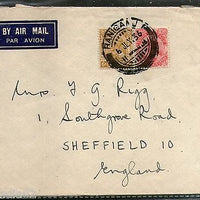 BY AIR MAIL
PAR AVION
Mrs. F. G. Rigg,
1, Southgrove Road,
SHEFFIELD 10.
England.